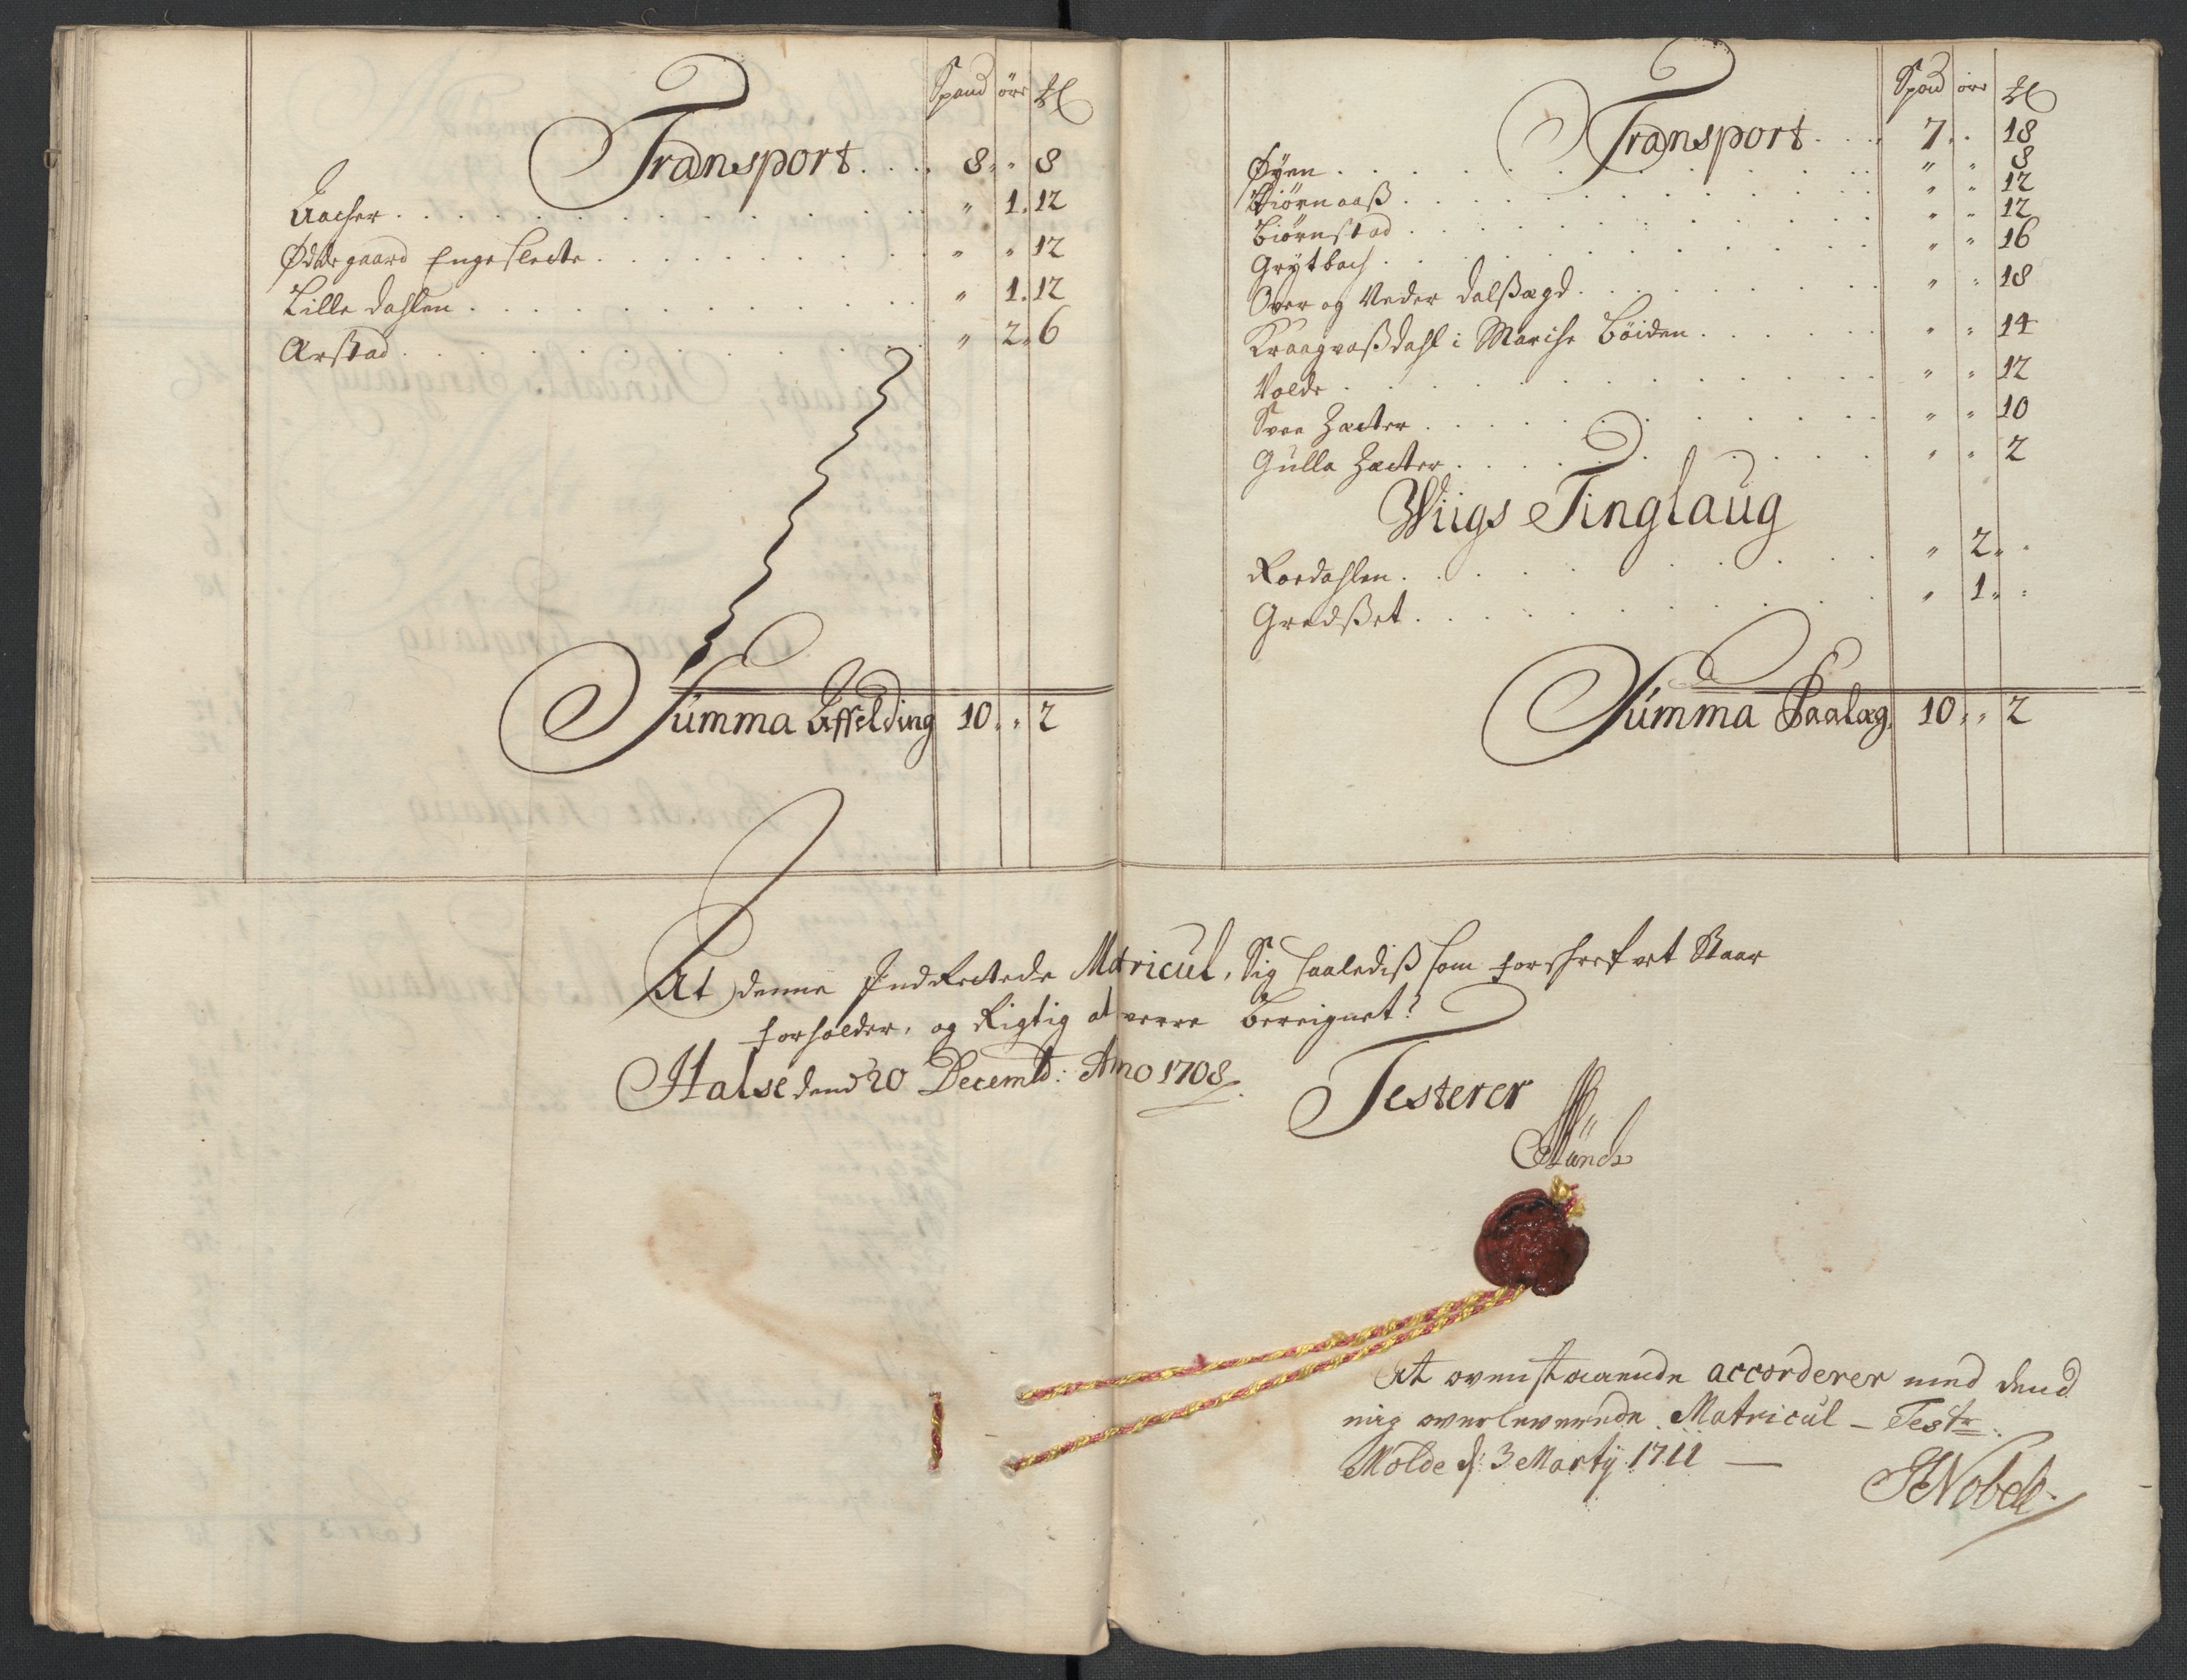 Spand öre ℔
Transport . . . . 8 " " 8
Aacher . . . " 1. 12
Ødegaard Engeslette . . . " " 12
Lille dahlen . . . " 1. 12
Arstad . . . " 2 " 6
Summa Affelding 10 " " 2
Spand öre ℔
Transport . . . 7 " " 18
Øyen . . . " " 8
Biørnaaß . . . " " 12
Biørnstad . . . " " 12
Grytbach . . . " " 16
Over og Neder dalßægd . . . " " 18
Kraagvaßdahl i Marche bøiden . . . " " 14
Volde . . . " " 12
Svan Zæter . . . " " 10
Gulla Zæter . . . " " 2
Wiigs Tinglaug
Roedahlen . . . " 2 " "
Gredßet . . . " 1 " "
Summa Paalæg. 10 " " 2
At denne Indrettede Matricul, Sig saalediß som forskrefvet Staar
forholder, og Rigtig at være bereignet?
Halse dend 20 Decembr: Ano 1708.
Testerer
Münch
At ovenstaaende accorderer med dend
mig overleverede Matricul – Testr.
Molde d: 3 Marty 1711 —
Nobel